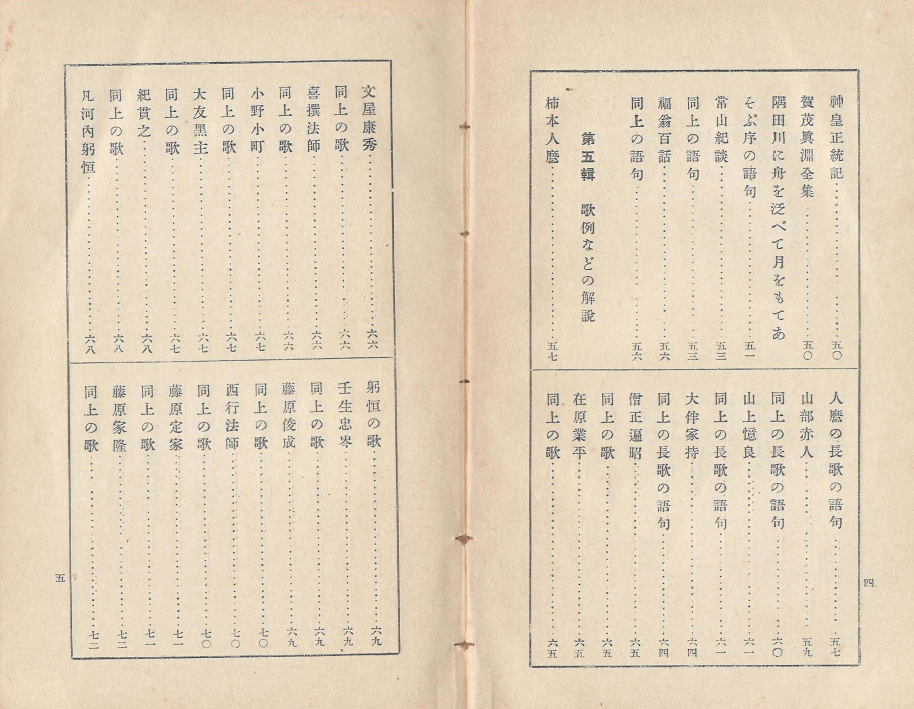 神皇正統記……五〇
賀茂眞淵全集……五〇
隅田川に舟を泛べて月をもてあ
そぶ序の語句……五一
常山紀談……五三
同上の語句……五三
福翁百話……五六
同上の語句……五六
第五輯 歌例などの解說
柿本人麿……五七
人麿の長歌の語句……五七
山部赤人……五九
同上の長歌の語句……六〇
山上憶良……六一
同上の長歌の語句……六一
大伴家持……六四
同上の長歌の語句……六四
僧正遍昭……六五
同上の歌……六五
在原業平……六五
同上の歌……六五
四
文屋康秀……六六
同上の歌……六六
喜撰法師……六六
同上の歌……六六
小野小町……六七
同上の歌……六七
大友黑主……六七
同上の歌……六七
紀貫之……六八
同上の歌……六八
凡河內躬恒……六八
躬恒の歌……六九
壬生忠岑……六九
同上の歌……六九
藤原俊成……六九
同上の歌……七〇
西行法師……七〇
同上の歌……七〇
藤原定家……七一
同上の歌……七一
藤原家隆……七二
同上の歌……七二
五